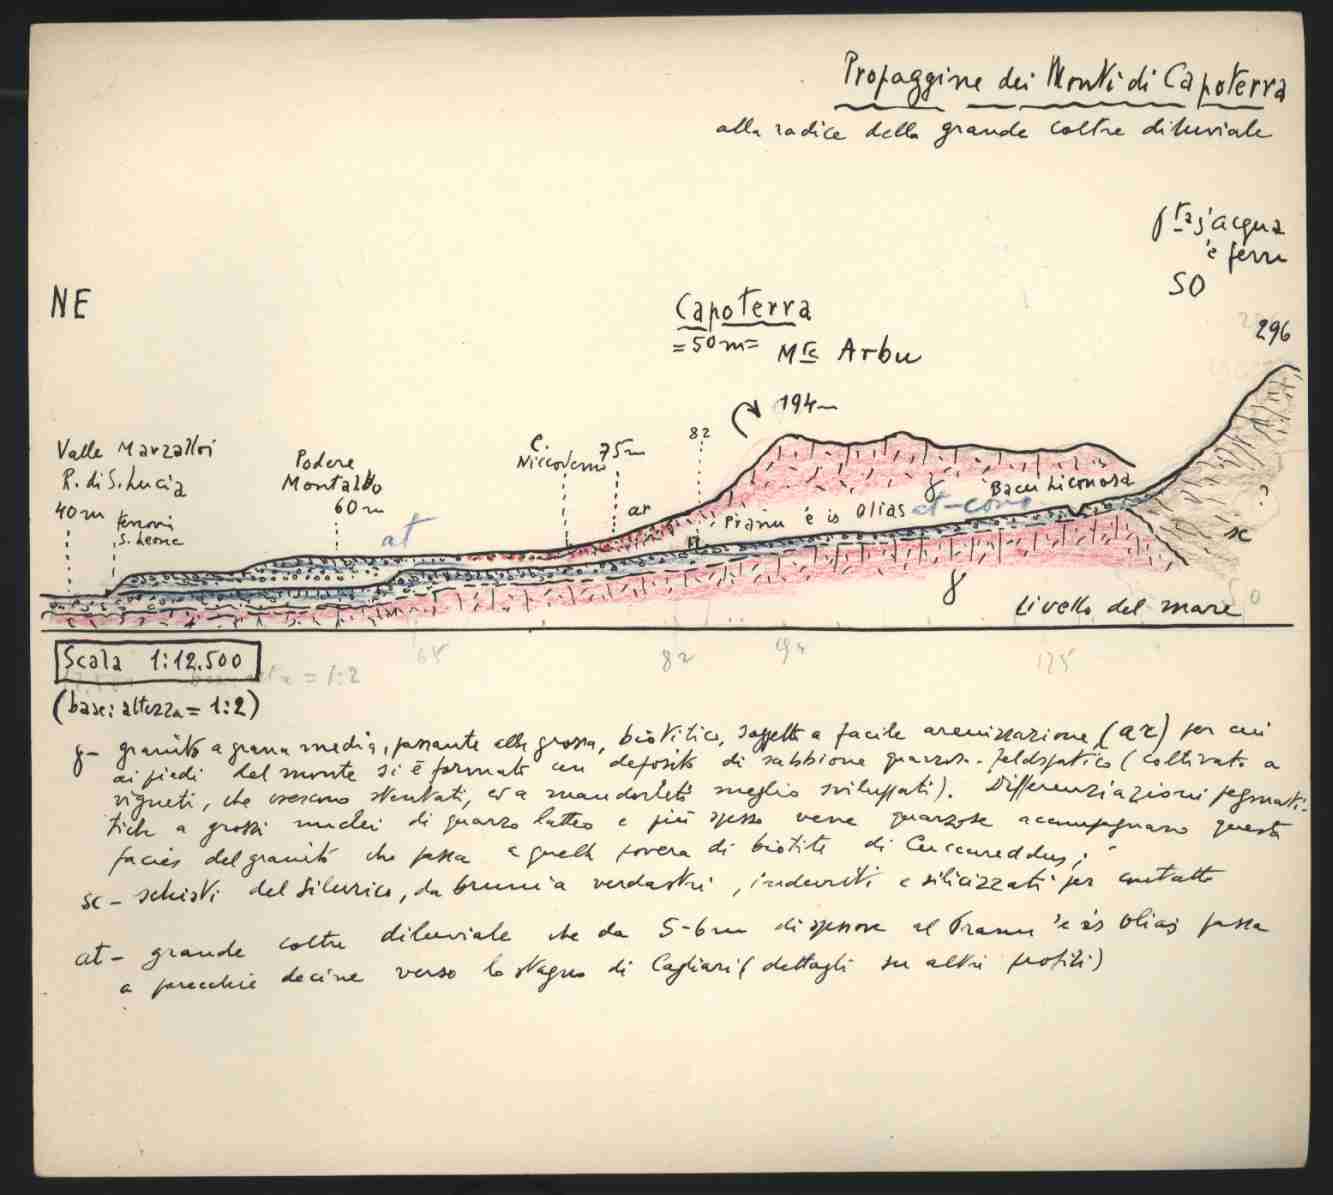 Propaggine dei Monti di Capoterra
alla radice della grande coltre diluviale
s'acqua
'e ferru
NE
SO
296
Capoterra
=50m=
Mte Arbu
194m
Valle Marzalloi
R. di S. Lucia
40m
Ferrovia
S. Leone
Podere
Montaldo
60m
C.
Niccodemo
75m
82
at
ar
Pranu 'e is Olias
at-cono
γ
Bacu Liconosa
?
sc
γ
Livello del mare
0
65
82
94
125
Scala 1:12.500
(base: altezza = 1:2)
γ – granito a grana media, passante alla grossa, biotitico, soggetto a facile arenizzazione (ar) per cui
ai piedi del monte si è formato un deposito di sabbione quarzoso-feldspatico (coltivato a
vigneti, che crescono stentati, ed a mandorleti meglio sviluppati). Differenziazioni pegmati-
tiche a grossi nuclei di quarzo latteo e più spesso vene quarzose accompagnano questa
facies del granito che passa a quella povera di biotite di Cuccureddus;
sc – schisti del Silurico, da bruni a verdastri, induriti e silicizzati per contatto
at – grande coltre diluviale che da 5-6m di spessore al Pranu 'e is Olias passa
a parecchie decine verso lo stagno di Cagliari (dettagli su altri profili)